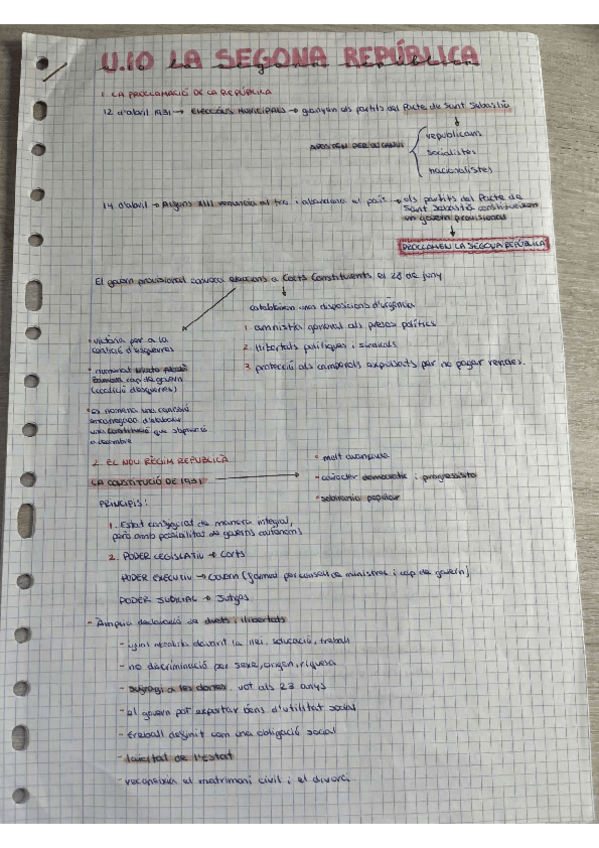 U.10 LA SEGONA REPÚBLICA
1. LA PROCLAMACIÓ DE LA REPÚBLICA
12 d'abril 1931 → ELECCIONS MUNICIPALS → guanyen els partits del Pacte de Sant Sebastià
republicans
socialistes
nacionalistes
14 d'abril → Alfons XIII renuncia al tro i abandona el país → els partits del Pacte de
Sant Sebastià constitueixen
un govern provisional
PROCLAMEN LA SEGONA REPÚBLICA
El govern provisional convoca eleccions a Corts Constituents el 28 de juny
estableixen unes disposicions d'urgència
1. amnistia general als presos polítics
2. llibertats polítiques i sindicals
3. protecció als camperols expulsats per no pagar rendes.
• victòria per a la
coalició d'esquerres
• nomenat
cap de govern
(coalició d'esquerres)
• es nomena una comissió
encarregada d'elaborar
una constitució que s'aprovà
a desembre
2. EL NOU RÈGIM REPUBLICÀ
LA CONSTITUCIÓ DE 1931
• molt avançada
• caràcter democràtic i progressista
• sobirania popular
PRINCIPIS:
1. Estat configurat de manera integral,
però amb possibilitat de governs autònoms
2. PODER LEGISLATIU → Corts
PODER EXECUTIU → Govern (format per consell de ministres i cap de govern)
PODER JUDICIAL → Jutges
- Àmplia declaració de drets i llibertats
- igualtat davant la llei, educació, treball
- no discriminació per sexe, origen, riquesa
- sufragi a les dones, vot als 23 anys
- el govern pot expropiar béns d'utilitat social
- treball definit com una obligació social
- laïcitat de l'Estat
- reconeixia el matrimoni civil i el divorci.